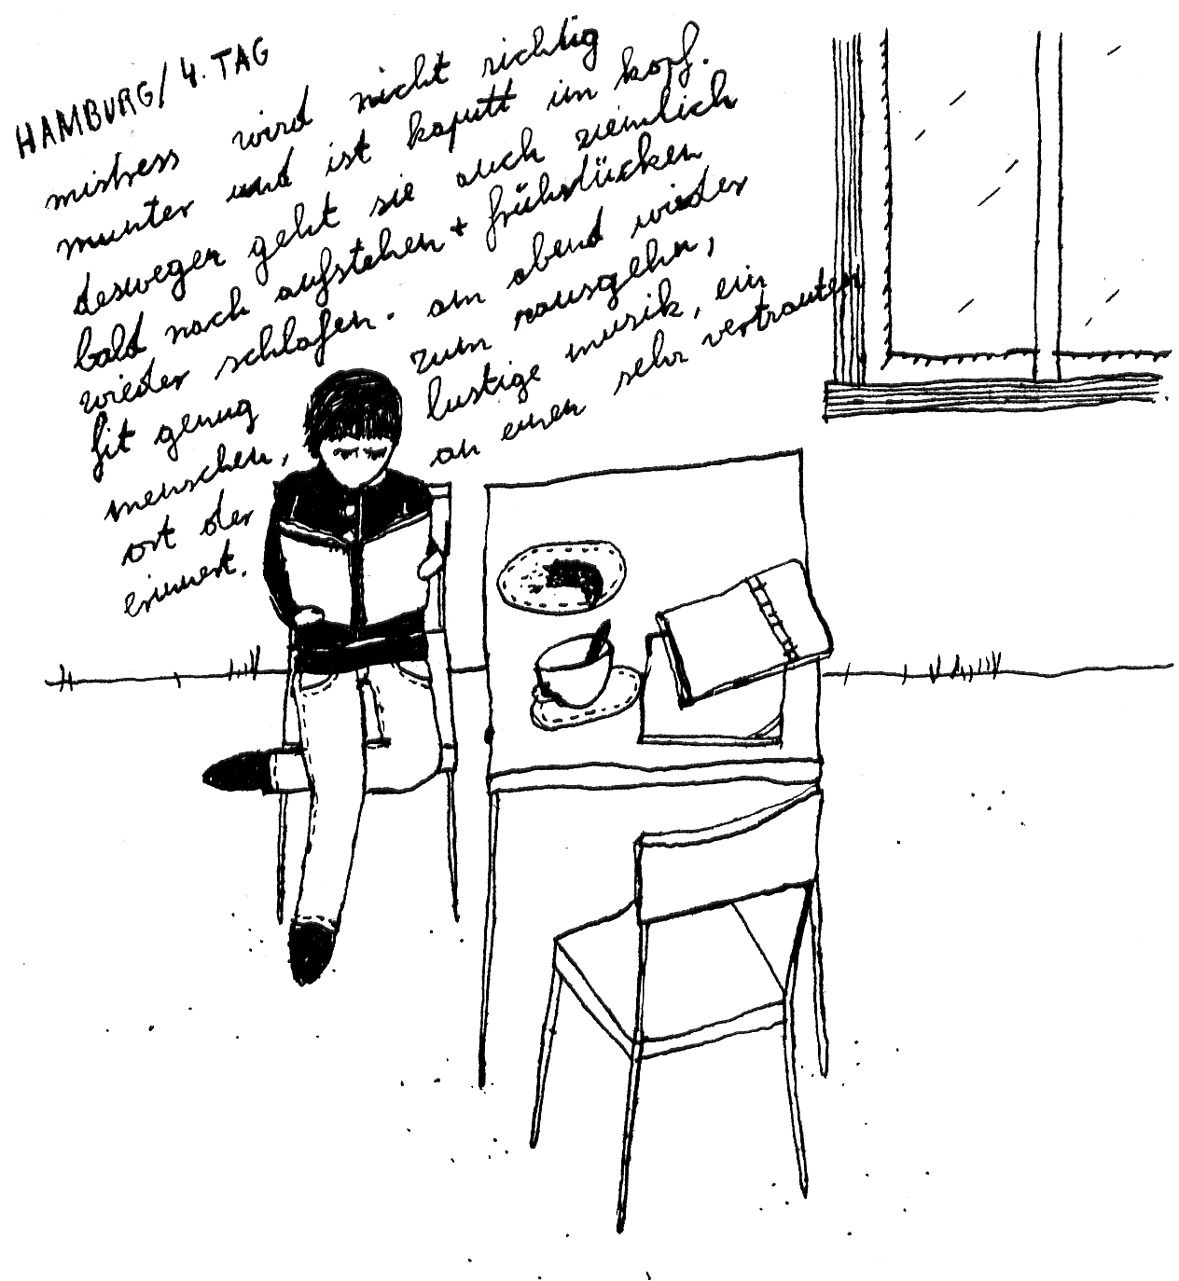 HAMBURG/ 4. TAG
mistress wird nicht richtig
munter und ist kaputt im kopf.
deswegen geht sie auch ziemlich
bald nach aufstehen + frühstücken
wieder schlafen. am abend wieder
fit genug zum rausgehn,
menschen, lustige musik, ein
ort der an einen sehr vertrauten
erinnert.